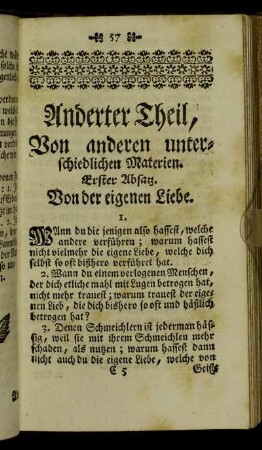 57
Anderter Theil,
Von anderen unter-
schiedlichen Materien.
Erster Absatz.
Von der eigenen Liebe.
1.
Wann du die jenigen also hassest, welche
andere verführen; warum hassest
nicht vielmehr die eigene Liebe, welche dich
selbst so oft bißhero verführet hat.
2. Wann du einem verlogenen Menschen,
der dich etliche mahl mit Lugen betrogen hat,
nicht mehr trauest; warum trauest der eige-
nen Lieb, die dich bißhero so oft und häßlich
betrogen hat?
3. Denen Schmeichlern ist jederman häs-
sig, weil sie mit ihrem Schmeichlen mehr
schaden, als nutzen; warum hassest dann
nicht auch du die eigene Liebe, welche von
C 5
Geist-